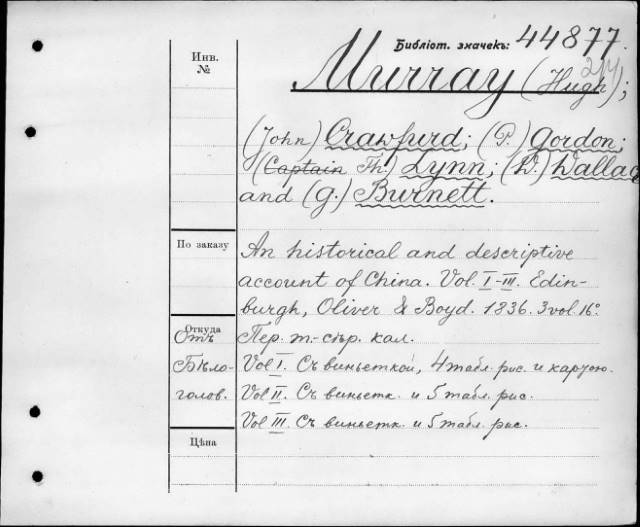 Библіот. значекъ: 44877.
Инв.
№
Murray (Hugh);
(John) Crawfurd; (P.) Gordon;
(Captain Th.) Lynn; (W.) Wallace
and (G.) Burnett.
По заказу
An historical and descriptive
account of China. Vol. I-III. Edin-
burgh, Oliver & Boyd. 1836. 3 vol. 16°.
Откуда
Отъ
Бѣло-
голов.
Пер. т.-сѣр. кал.
Vol I. Съ виньеткой, 4 табл. рис. и картою.
Vol II. Съ виньетк. и 5 табл. рис.
Vol III. Съ виньетк. и 5 табл. рис.
Цѣна